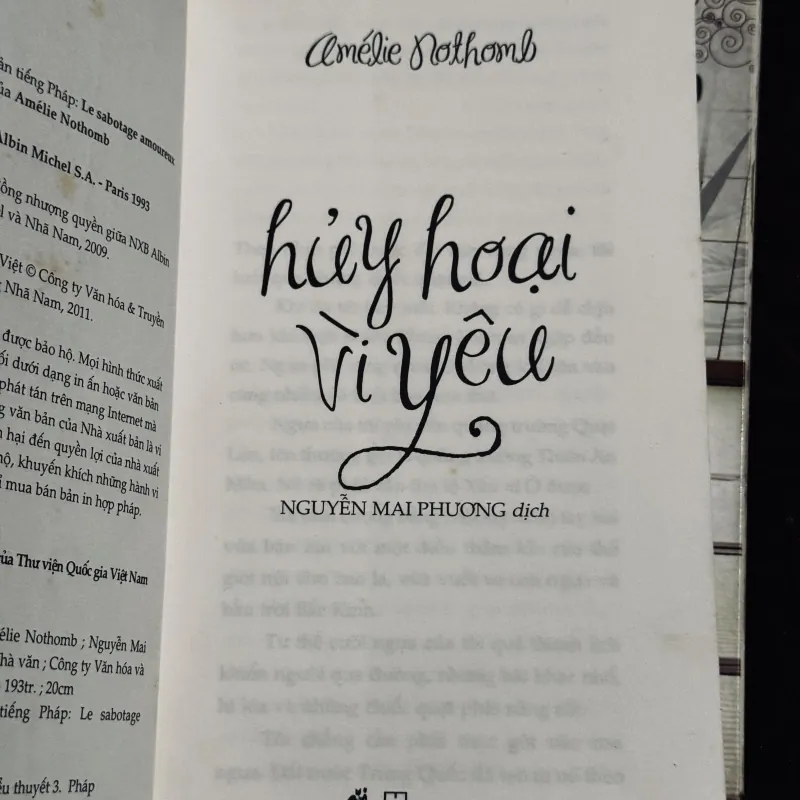 ản tiếng Pháp: Le sabotage amoureux
ủa Amélie Nothomb
Albin Michel S.A. - Paris 1993
ồng nhượng quyền giữa NXB Albin
l và Nhã Nam, 2009.
Việt © Công ty Văn hóa & Truyền
g Nhã Nam, 2011.
được bảo hộ. Mọi hình thức xuất
ối dưới dạng in ấn hoặc văn bản
phát tán trên mạng Internet mà
g văn bản của Nhà xuất bản là vi
hại đến quyền lợi của nhà xuất
hộ, khuyến khích những hành vi
mua bán bản in hợp pháp.
ủa Thư viện Quốc gia Việt Nam
élie Nothomb ; Nguyễn Mai
hà văn ; Công ty Văn hóa và
193tr. ; 20cm
tiếng Pháp: Le sabotage
ểu thuyết 3. Pháp
Amélie Nothomb
hủy hoại
vì yêu
NGUYỄN MAI PHƯƠNG dịch